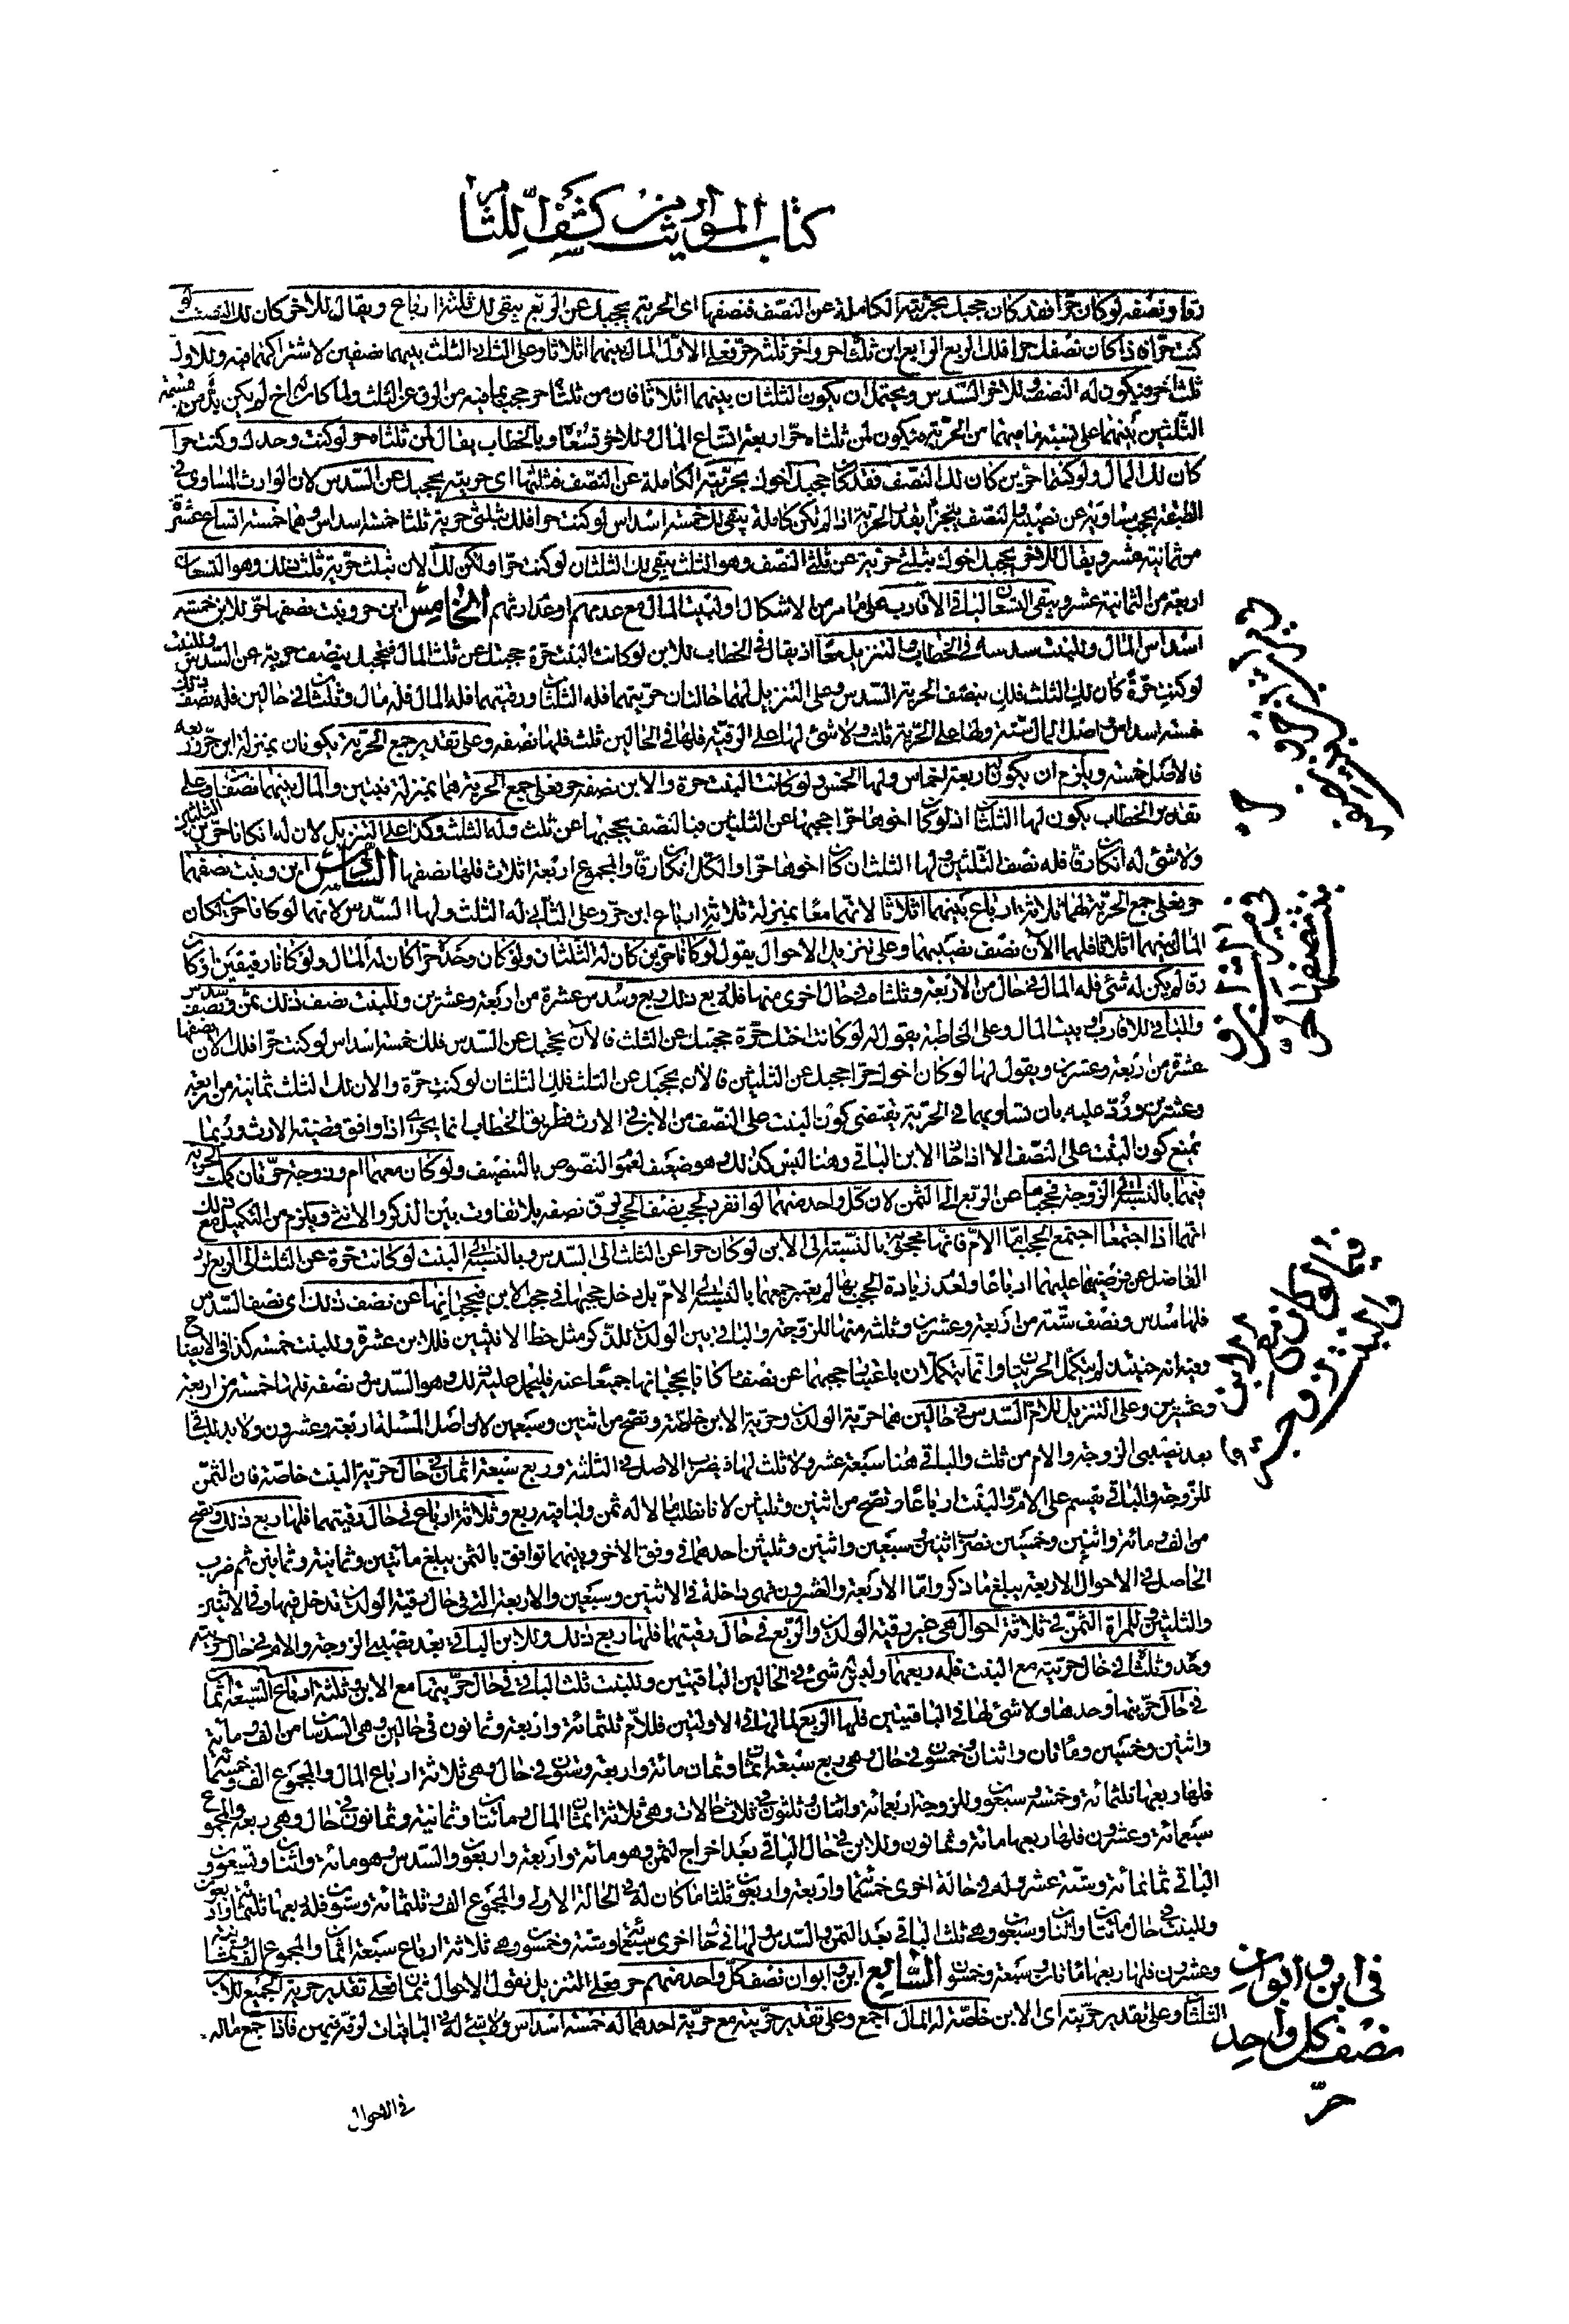 كتاب المواريث كشف اللثام
رقا ونصفه لو كان حرا فقد كان حجبك بحريته الكاملة عن النصف فنصفها اى الحرية يحجبك عن الربع يبقى لك ثلثة ارباع ويقال للاخر كان لك النصف لو
كنت حرا اذا كان نصفك حرا فلك الربع الرابع ابن ثلثاه حر واخر ثلثه حر فعلى الاول المال بينهما اثلاثا وعلى الثانى الثلث بينهما نصفين لاشتراكهما فيه وللاول
ثلث اخر فيكون له النصف وللاخر السدس ويحتمل ان يكون الثلثان بينهما اثلاثا فان من ثلثاه حر حجب بما فيه من الرق عن الثلث
الثلثين بينهما على نسبة ما فيهما من الحرية فيكون لمن ثلثاه حر اربعة اتساع المال وللاخر تسعان وبالخطاب يقال لمن ثلثاه حر لو كنت وحدك وكنت حرا
كان لك المال ولو كنتما حرين كان لك النصف فقد كان حجبك اخوك بحريته الكاملة عن النصف فثلثها اى حريته يحجبك عن السدس لان الوارث المساوى فى
الطبقة يحجب مساويه عن نصيبه والنصف يتجزأ بقدر الحرية اذا لم تكن كاملة يبقى لك خمسة اسداس لو كنت حرا فلك بثلثى حرية ثلثا خمسة اسداس وهما خمسة اتساع عشرة
من ثمانية عشر ويقال للاخر يحجبك اخوك بثلثى حريته عن ثلثى النصف وهو الثلث يبقى لك الثلثان لو كنت حرا ولكن لك الان بثلث حرية ثلث ذلك وهو التسعان
اربعة من الثمانية عشر ويبقى التسعان الباقى لاقاربه على ما مر من الاشكال او لبيت المال مع عدمهم او عدم ارثهم الخامس ابن حر وبنت نصفها حر للابن خمسة
اسداس المال وللبنت سدسه فى الخطاب والتنزيل معا اذ يقال فى الخطاب للابن لو كانت البنت حرة حجبتك عن ثلث المال فيحجبك بنصف حرية عن السدس وللبنت
لو كنت حرة كان لك الثلث فلك بنصف الحرية السدس وعلى التنزيل لهما حالتان حريتهما فله الثلثان ورقيتهما فله المال فله مال وثلثان فى حالين فله نصف ذلك
خمسة اسداس اصل المال ستة ولها على الحرية ثلث ولا شئ لها على الرقية فلها فى الحالين ثلث فلها نصفه وعلى تقدير جمع الحرية يكونان بمنزلة ابن حر
فالاصل خمسة ويلزم ان يكون له اربعة اخماس ولها الخمس ولو كانت البنت حرة والابن نصفه حر فعلى جمع الحرية هما بمنزلة بنتين والمال بينهما نصفان وعلى
تقدير الخطاب يكون لها الثلثان اذ لو كان اخوها حرا حجبها عن الثلثين فبالنصف يحجبها عن ثلث وله الثلث وكذا على التنزيل لان له ان كانا حرين الثلثان
ولا شئ له ان كان رقا فله نصف الثلثين ولها الثلثان ان كان اخوها حرا والكل ان كان رقا والمجموع اربعة اثلاث فلها نصفها السادس ابن وبنت نصفهما
حر فعلى جمع الحرية لهما ثلاثة ارباع بينهما اثلاثا لانهما معا بمنزلة ثلاثة ارباع ابن حر وعلى الثانى له الثلث ولها السدس لانهما لو كانا حرين لكان
المال بينهما اثلاثا فلهما الان نصف نصيبهما وعلى تنزيل الاحوال يقول لو كانا حرين كان له الثلثان ولو كان وحده حرا كان له المال ولو كانا رقيقين او كان
رقا لم يكن له شئ فله المال فى حال من الاربعة وثلثاه فى حال اخرى منها فله ربع ذلك ربع وسدس عشرة من اربعة وعشرين وللبنت نصف ذلك ثمن ونصف سدس
والباقى للاقارب او بيت المال وعلى المخاطبة يقول له لو كانت اختك حرة حجبتك عن الثلث فالان يحجبك عن السدس فلك خمسة اسداس لو كنت حرا فلك الان نصفها
عشرة من اربعة وعشرين ويقول لها لو كان اخوك حرا حجبك عن الثلثين فالان يحجبك عن الثلث فلك الثلثان لو كنت حرة والان لك الثلث ثمانية من اربعة
وعشرين ورد عليه بان تساويهما فى الحرية يقتضى كون البنت على النصف من الابن فى الارث فطريق الخطاب انما يجرى اذا وافق قضية الارث وربما
يمنع كون البنت على النصف الا اذا حاز الابن الباقى وهنا ليس كذلك وهو ضعيف لعموم النصوص بالتنصيف ولو كان معهما ام وزوجة حرتان كملت الحرية
فيهما بالنسبة الى الزوجة فحجباها عن الربع الى الثمن لان كل واحد منهما لو انفرد لحجب نصف الحجب لرق نصفه بلا تفاوت بين الذكر والانثى ويلزم من التكميل مع ذلك
انهما اذا اجتمعا اجتمع الحجب اما الام فانها محجوبة بالنسبة الى الابن لو كان حرا عن الثلث الى السدس وبالنسبة الى البنت لو كانت حرة عن الثلث الى الربع لرد
الفاضل عن فرضيهما عليهما ارباعا ولعدم زيادة الحجب بها لم يعتبر جمعهما بالنسبة الى الام بل دخل حجبها فى حجب الابن فيحجبانها عن نصف ذلك اى نصف السدس
فلها سدس ونصف ستة من اربعة وعشرين وثلثه منها للزوجة والباقى بين الولدين للذكر مثل حظ الانثيين فللابن عشرة وللبنت خمسة كذا فى الايضاح
وفيه انه حينئذ لم يتكمل الحريتان وانما يتكملان باعتبار حجبهما عن نصف ما كانا يحجبانها جميعا عنه فليحمل عليه ذلك وهو السدس ونصفه فلها خمسة من اربعة
وعشرين وعلى التنزيل للام السدس فى حالين هما حرية الولدين وحرية الابن خاصة وتصح من اثنين وسبعين لان اصل المسئلة اربعة وعشرون ولا بد للباقى
بعد نصيبى الزوجة والام من ثلث والباقى هنا سبعة عشر ولا ثلث لها فيضرب الاصل فى الثلثة وربع سبعة اثمان فى حال حرية البنت خاصة فان الثمن
للزوجة والباقى يقسم على الام والبنت ارباعا وتصح من اثنين وثلثين لانا نطلب ما لا له ثمن ولباقيه ربع وثلاثة ارباع فى حال رقيتهما فلها ربع ذلك وتصح
من الف ومائة واثنين وخمسين نضرب اثنين وسبعين واثنين وثلثين احدهما فى وفق الاخر وبينهما توافق بالثمن يبلغ مائتين وثمانية وثمانين ثم ضرب
الحاصل فى الاحوال الاربعة يبلغ ما ذكر واما الاربعة والعشرون فهى داخلة فى الاثنين وسبعين والاربعة التى فى حال رقية الولدين تدخل فيها وفى الاثنين
والثلثين وللمراة الثمن فى ثلاثة احوال هى غير رقية الولدين والربع فى حال رقيتهما فلها ربع ذلك وللابن الباقى بعد نصيبى الزوجة والام فى حال حريته
وحده وثلثا فى حال حريته مع البنت فله ربعهما وليس له شئ فى الحالين الباقيتين وللبنت ثلث الباقى فى حال حريتها مع الابن وثلثة ارباع السبعة اثمان
فى حال حريتها وحدها ولا شئ لها فى الباقيتين فلها الربع لما لها فى الاوليين فللام ثلثمائة واربعة وثمانون فى حالين وهى السدسان من الف ومائة
واثنين وخمسين ومائتان واثنان وخمسون فى حال وهى ربع سبعة اثمان وثمان مائة واربعة وستون فى حال وهى ثلاثة ارباع المال والمجموع الف وخمسمائة
فلها ربعها ثلثمائة وخمسة وسبعون وللزوجة اربعمائة واثنان وثلثون فى ثلاث حالات وهى ثلاثة اثمان المال ومائتان وثمانية وثمانون فى حال وهى ربعه والمجموع
سبعمائة وعشرون فلها ربعها مائة وثمانون وللابن فى حال الباقى بعد اخراج الثمن وهو مائة واربعة واربعون والسدس وهو مائة واثنان وتسعون و
الباقى ثمانمائة وستة عشر وله فى حالة اخرى خمسمائة واربعة واربعون ثلثا ما كان له فى الحالة الاولى والمجموع الف وثلثمائة وستون فله ربعها ثلثمائة واربعون
وللبنت فى حال مائتان واثنان وسبعون وهى ثلث الباقى بعد الثمن والسدس ولها فى حال اخرى سبعمائة وستة وخمسون وهى ثلاثة ارباع سبعة اثمان والمجموع الف وثمانية
وعشرون فلها ربعها مائتان وسبعة وخمسون السابع ابن وابوان نصف كل واحد منهم حر فعلى التنزيل نقول الاحوال ثمان فعلى تقدير حرية الجميع للابن
الثلثان وعلى تقدير حريته اى الابن خاصة له المال اجمع وعلى تقدير حريته مع حرية احدهما له خمسة اسداس ولا شئ له فى الباقيات لرقه فيهن فاذا جمع ماله
فى الاحوال
فى ابن وبنت
بنصفهما حر
فيما لو كان مع الابن
والبنت زوجة
وام
فى ابن وابوان
نصف كل واحد
حر